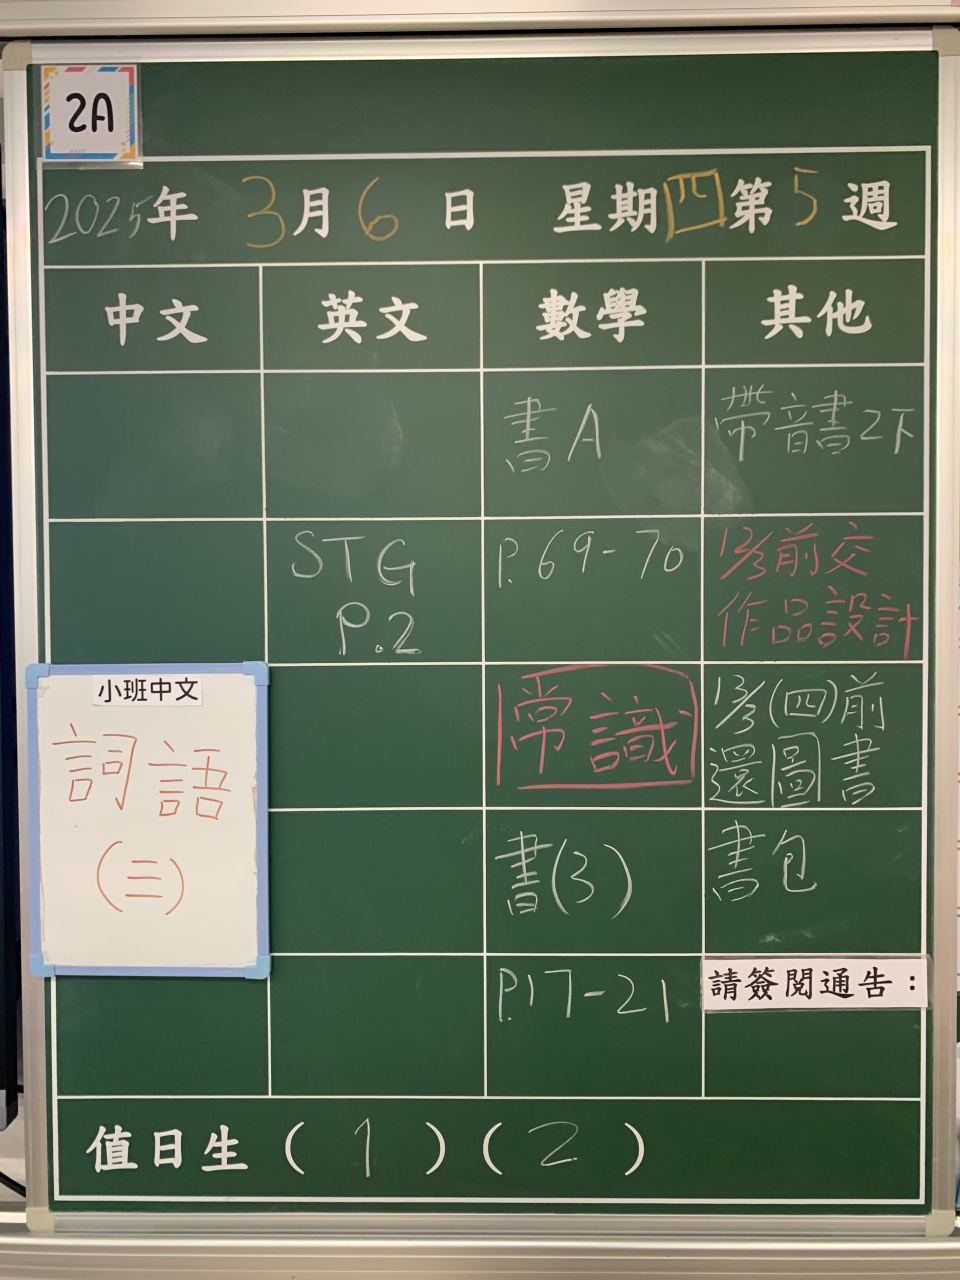 2A
2025年 3月6日 星期四第5週
中文 英文 數學 其他
書A 帶音書2下
STG P.69-70 13/3前交
P.2 作品設計
小班中文
詞語
(三)
常識 13/3(四)前
還圖書
書(3) 書包
P.17-21 請簽閱通告：
值日生（1）（2）